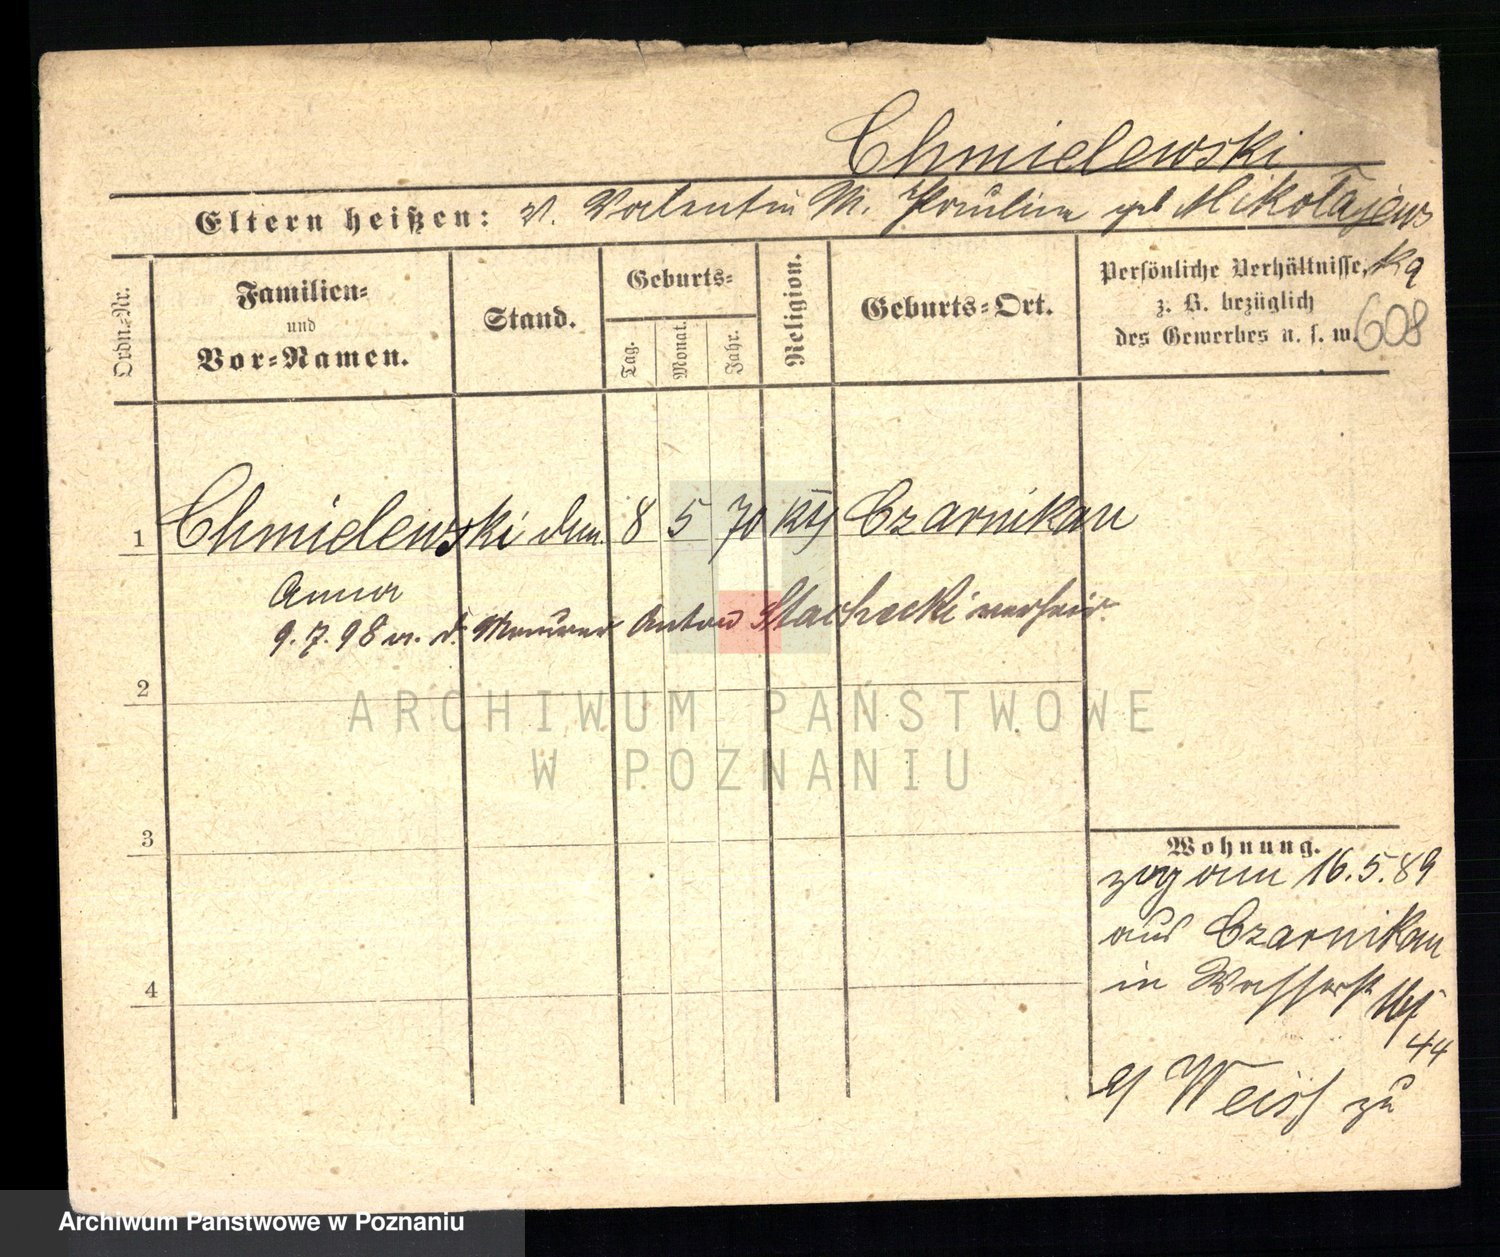 Chmielewski
Eltern heißen: V. Valentin M. Paulina geb Mikołajews
ka
Ordn.-Nr.
Familien-
und
Vor-Namen.
Stand.
Geburts-
Tag.
Monat.
Jahr.
Religion.
Geburts-Ort.
Persönliche Verhältnisse,
z. B. bezüglich
des Gewerbes u. s. w.
608
1 Chmielewski 8 5 70 Czarnikau
Anna
9.7.98 m. d. Maurer Anton Stachecki verheir.
2
3
4
Wohnung.
zog am 16.5.89
aus Czarnikau
in Wasserst
44
Weiss zu
ARCHIWUM PAŃSTWOWE
W POZNANIU
Archiwum Państwowe w Poznaniu